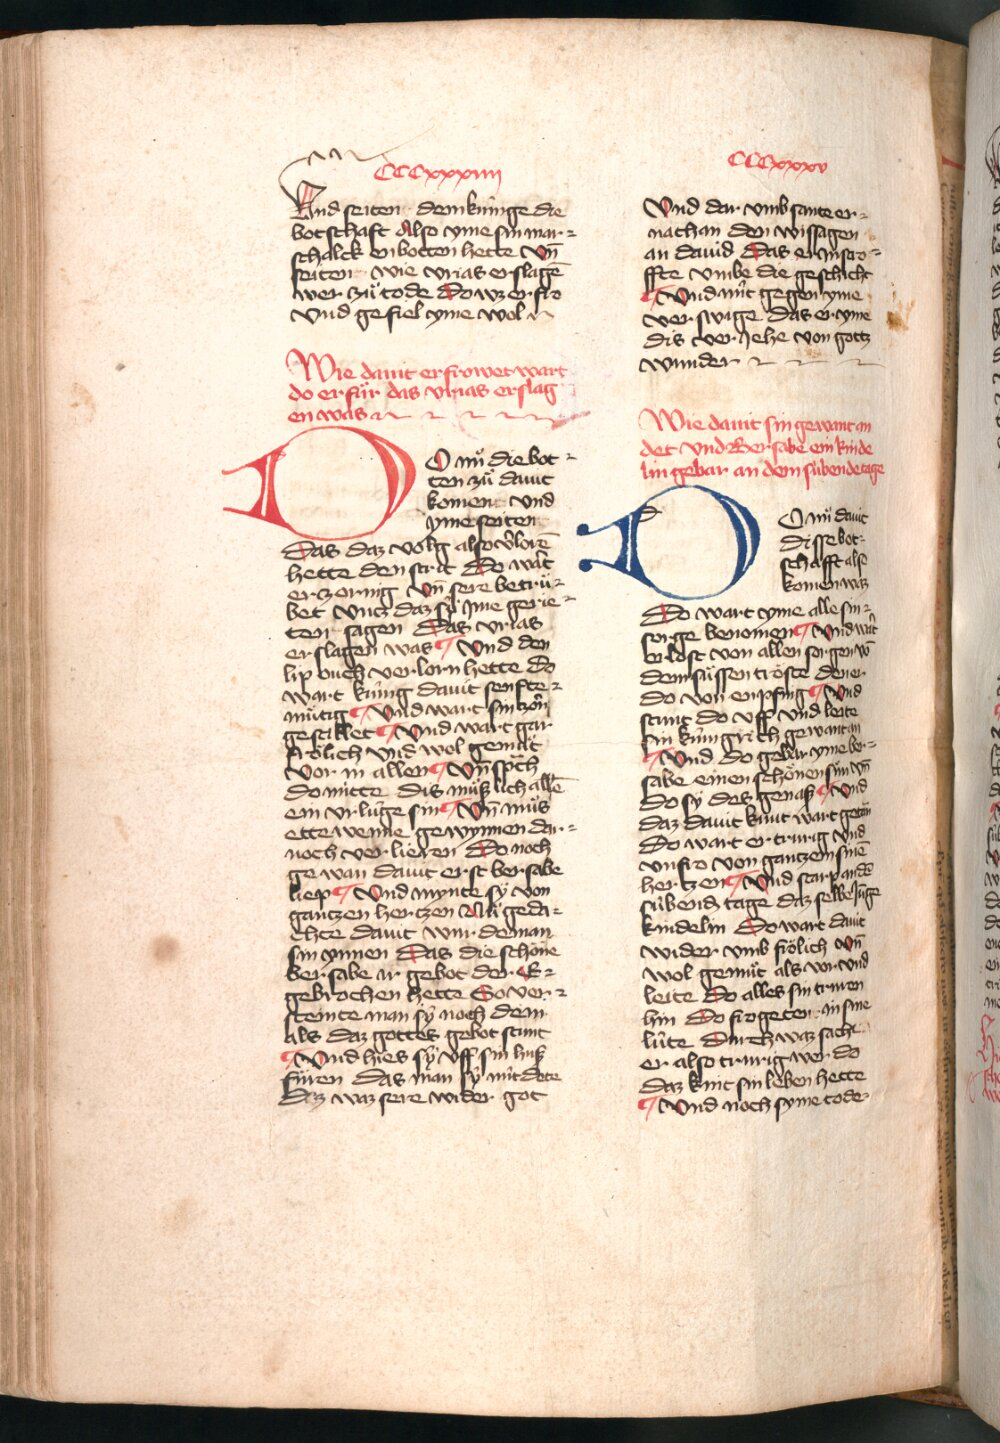 CCCxxxiiii
Vnd seiten dem kúnige die
botschaft Also yme sin mar=
schalck enbotten hette vn̄
seiten wie vrias erslagē
wer zů tode Do wz er fro
vnd gefiel yme wol
Wie dauit erfrowet wart
do er fůr das vrias erslag
en was
DO nů die bot=
ten zů dauit
koment vnd
yme seiten
Das daz volg also v̓lorē
hette den strit Do wart
er zornig vn̄ sere betrů=
bet vntz daz sy̓ yme gerie=
ten sagen Das vrias
erslagen was ¶ Vnd den
lip ouch verlorn hette do
wart kúnig dauit senfte=
mütig ¶ Vnd wart sin zorn
gestillet ¶ Vnd wart gar
frölich vnd wol gemůt
vor in allen ¶ Vn̄ sp̄ch
do mitte dis můß lich allē
ein vrlúge sin ¶ Vn̄ můs
ettewenne gewynnen dar=
noch verlieren Do noch
gewan dauit erst bersabe
liep ¶ Vnd mynte sy̓ von
gantzen hertzen Nů geda=
chte dauit wur deman
sin ynnen Das die schöne
bersabe ir gebot der E=
gebrochen hette So ver=
steinte man sy̓ noch dem
als daz gottes gebot stunt
¶ Vnd hies sy̓ vff sin huß
fůren Das man sy̓ nút dete
Daz waz sere wider got
CCCxxxv
Vnd dar vmb sante er=
nathan den wissagen
an dauid Das er in stro=
ffte vmbe die geschicht
¶ Vnd nút gegen yme
verswige das er yme
dis verjehe von gottz
wunder
Wie dauit sin gewant an
det vnd Bersabe ein kinde
lin gebar an dem sübende tage
DO nů dauit
disse bot=
schafft also
komen waz
Do wart yme alle sin=
sorge benomen ¶ Vnd wart
erlöst von allen sorgen vō
dem süssen troste den er
do von enpfing ¶ Vnd
stunt do vff vnd leite
sin kúnigrich gewant an
¶ Vnd do gebar yme ber=
sabe einen schönen sun vn̄
do sy̓ des genaß ¶ Vnd
daz dauit kunt wart getān
Do wart er trurig vnd
vnfro von gantzem sinē
hertzen ¶ Vnd starp an dē
sübenden tage daz selbe junge
kindelin Do wart dauit
wider vmb frölich vn̄
wol gemůt als vor vnd
leite do alles sin truren
hin Do frogeten in sine
lúte Durch waz sache
er also trurig wer do
daz kint sin leben hette
¶ Vnd noch syme tode